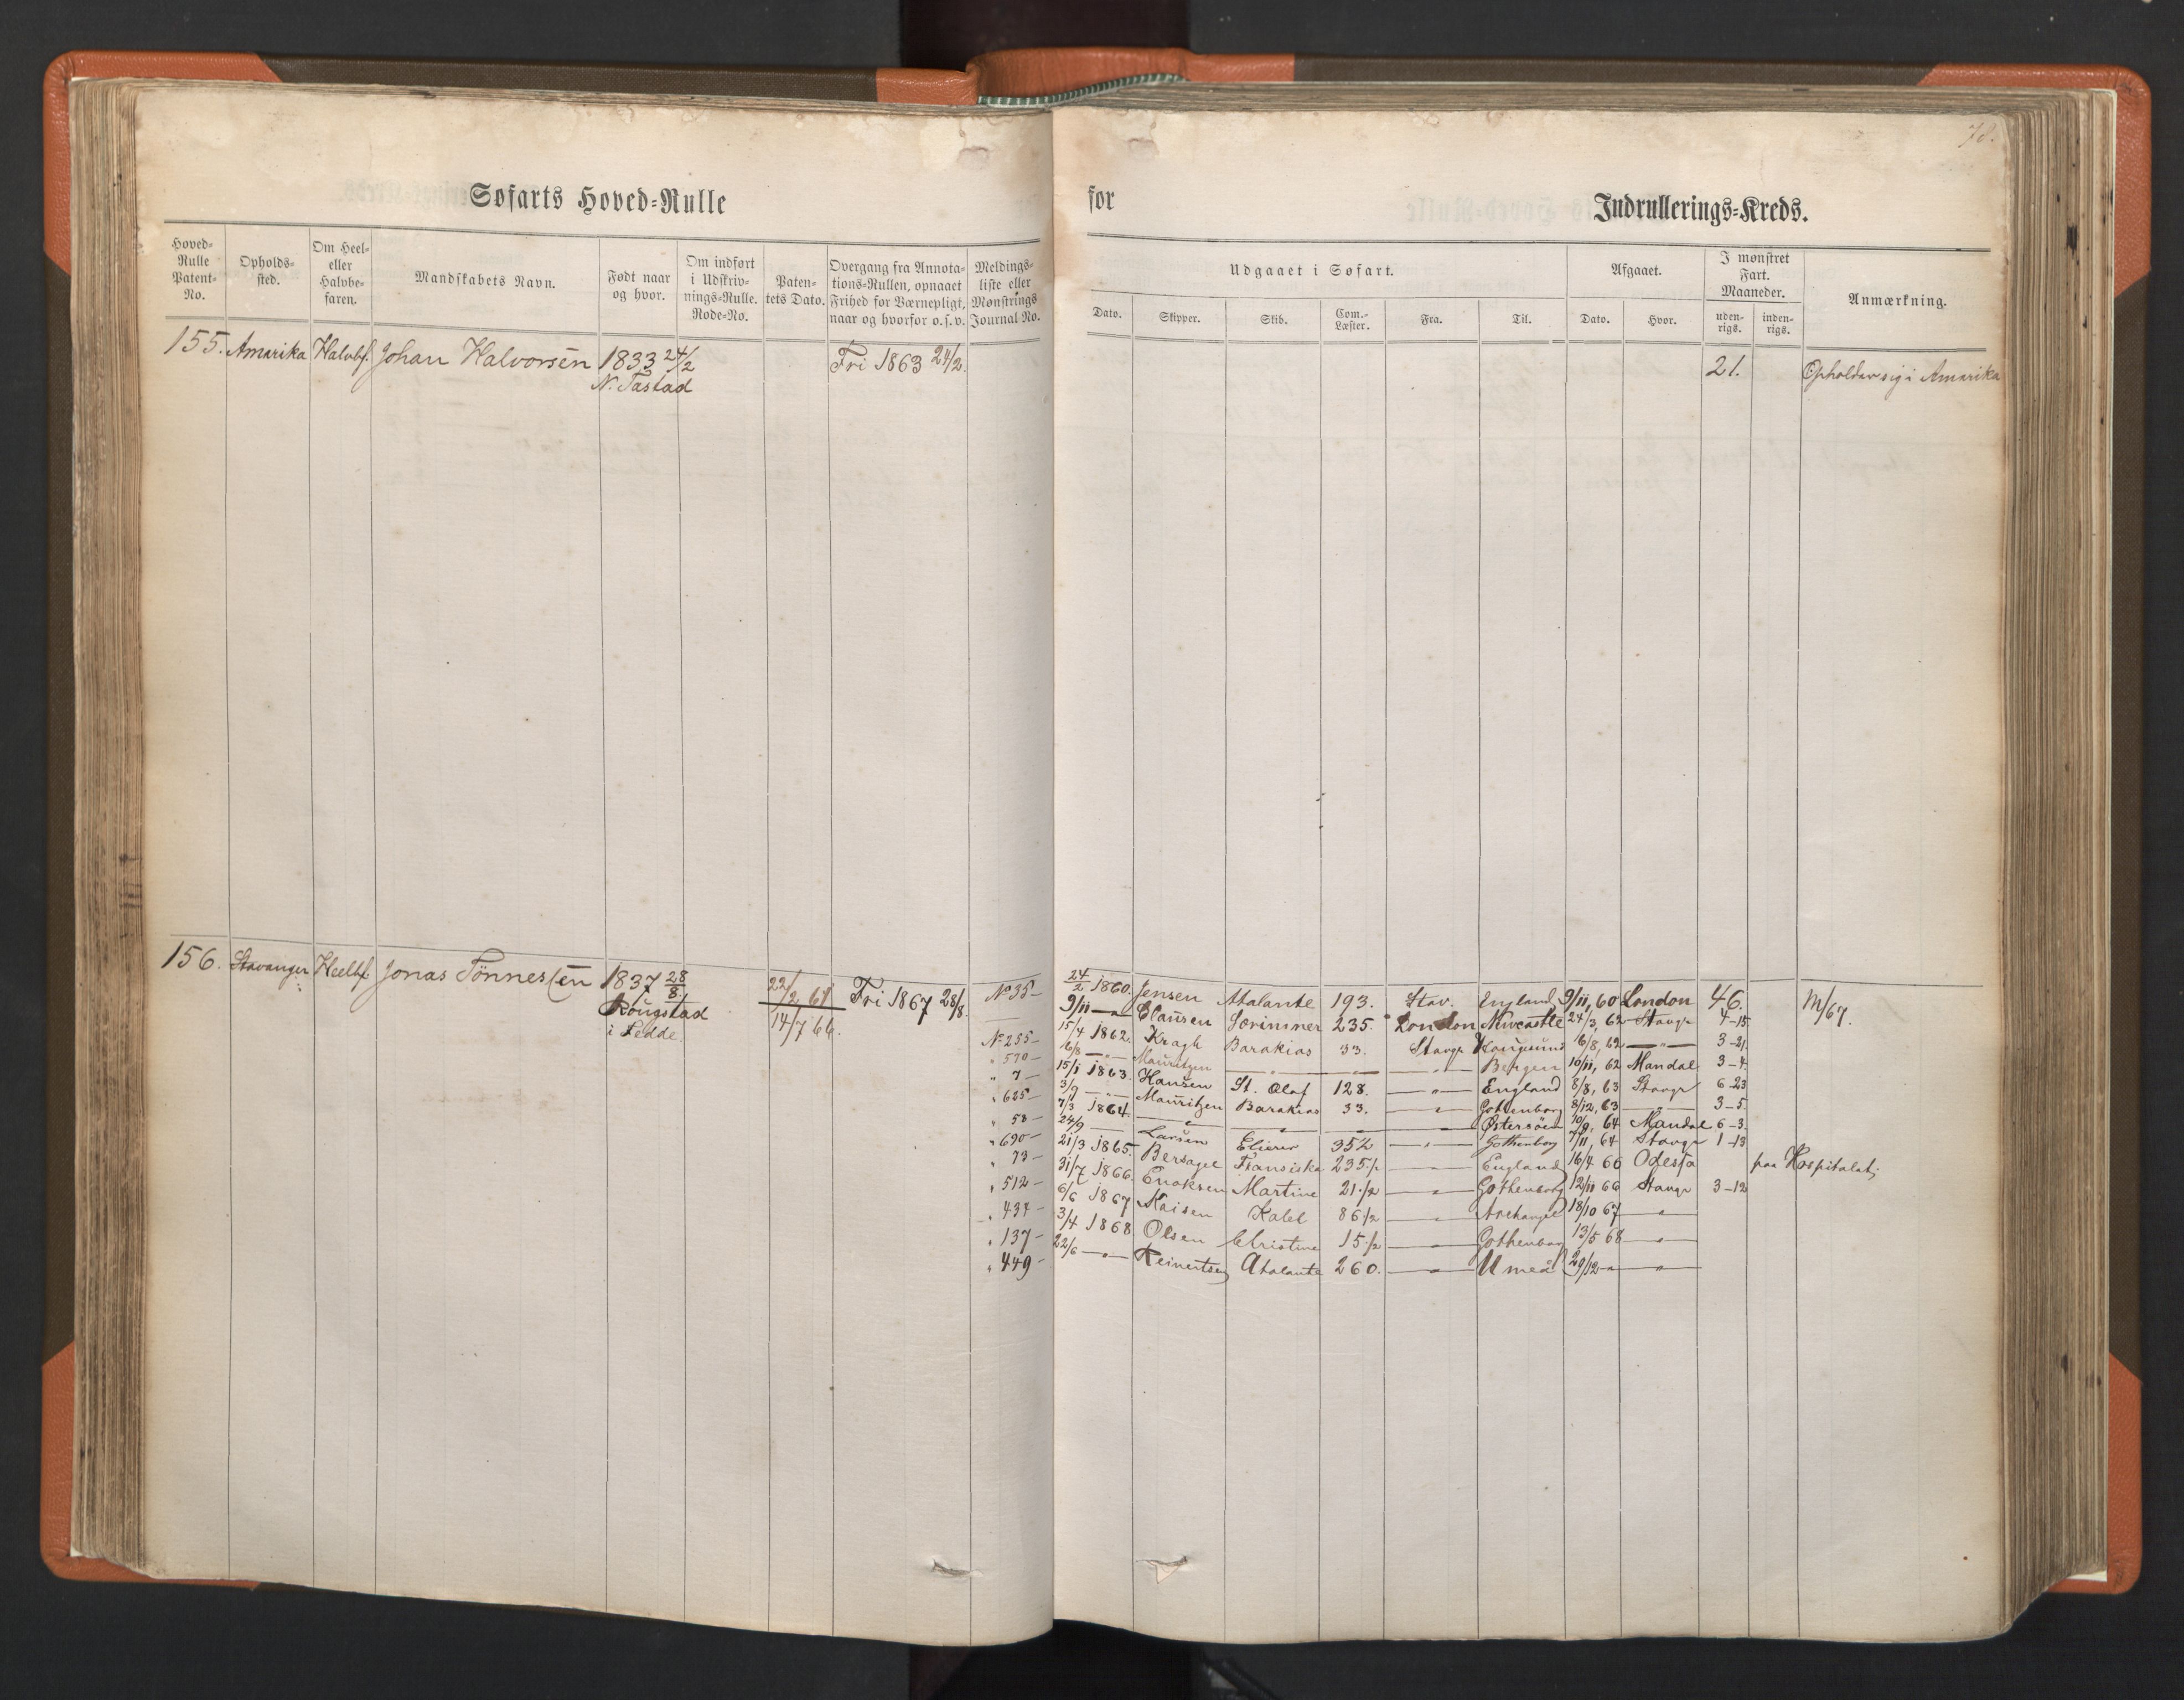 78.
Søfarts Hoved-Rulle for Indrullerings-Kreds.
Hoved-Rulle Patent-No. Opholds-sted. Om Heel- eller Halvbe-faren. Mandskabets Navn. Født naar og hvor. Om indført i Udskriv-nings-Rulle. Rode-No. Paten-tets Dato. Overgang fra Annota-tions-Rullen, opnaaet Frihed for Værnepligt, naar og hvorfor o. s. v. Meldings-liste eller Mønstrings Journal-No.
Udgaaet i Søfart. Afgaaet. I mønstret Fart. Maaneder. Anmærkning.
Dato. Skipper. Skib. Com.-Læster. Fra. Til. Dato. Hvor. uden-rigs. inden-rigs.
155. Amerika Halvbf. Johan Halvorsen 1833 24/2 Fri 1863 24/2. 21. Opholder sig i Amerika
N. Tastad
156. Stavanger Heelbf. Jonas Tönnessen 1837 28/8 22/2 61 Fri 1867 28/8. No 35 - 24/2 1860. Jensen Atalante 193. Stav. England 9/11, 60 London 46. M/67.
Rougstad 14/7 66.
i Ledde.
9/11 — " Clausen Sorimner 235. London Newcastle 24/3, 62 Stavgr 4-15
No 255 - 15/4 1862. Kragh Barakias 33. Stavgr Haugsund 6/8, 62 — " — 3-21
" 570 - 6/8 — " — Mauritzen — " — — " — — " — Bergen 10/11, 62 Mandal 3-4
" 7 - 15/1 1863. Hansen St. Olaf 128. — " — England 8/8, 63 Stavgr 6-23
" 625 - 3/9 — " — Mauritzen Barakias 33. — " — Gothenborg 8/12, 63 — " — 3-5.
" 58 - 7/3 1864. — " — — " — — " — — " — Østersöen 10/9, 64 Mandal 6-3.
" 690 - 24/9 — Larsen Elieser 352 — " — Gothenborg 7/11, 64 Stavgr 1-13
" 73 - 21/3 1865. Bersagel Fransiska 235 1/2 — " — England 16/4 66 Odessa paa Hospitalet;
" 512 - 31/7 1866. Enoksen Martine 21 1/2 — " — Gothenborg 12/11 66 Stavgr 3-12
" 434 - 6/6 1867 Naisen Kaleb 86 1/2 — " — Archangel 18/10 67 — " —
" 137 - 3/4 1868 Olsen Christine 15 1/2 — " — Gothenborg 13/5 68 — " —
" 449 - 22/6 — " — Reinertsen Atalante 260. — " — Umeå 29/12 — " — " —